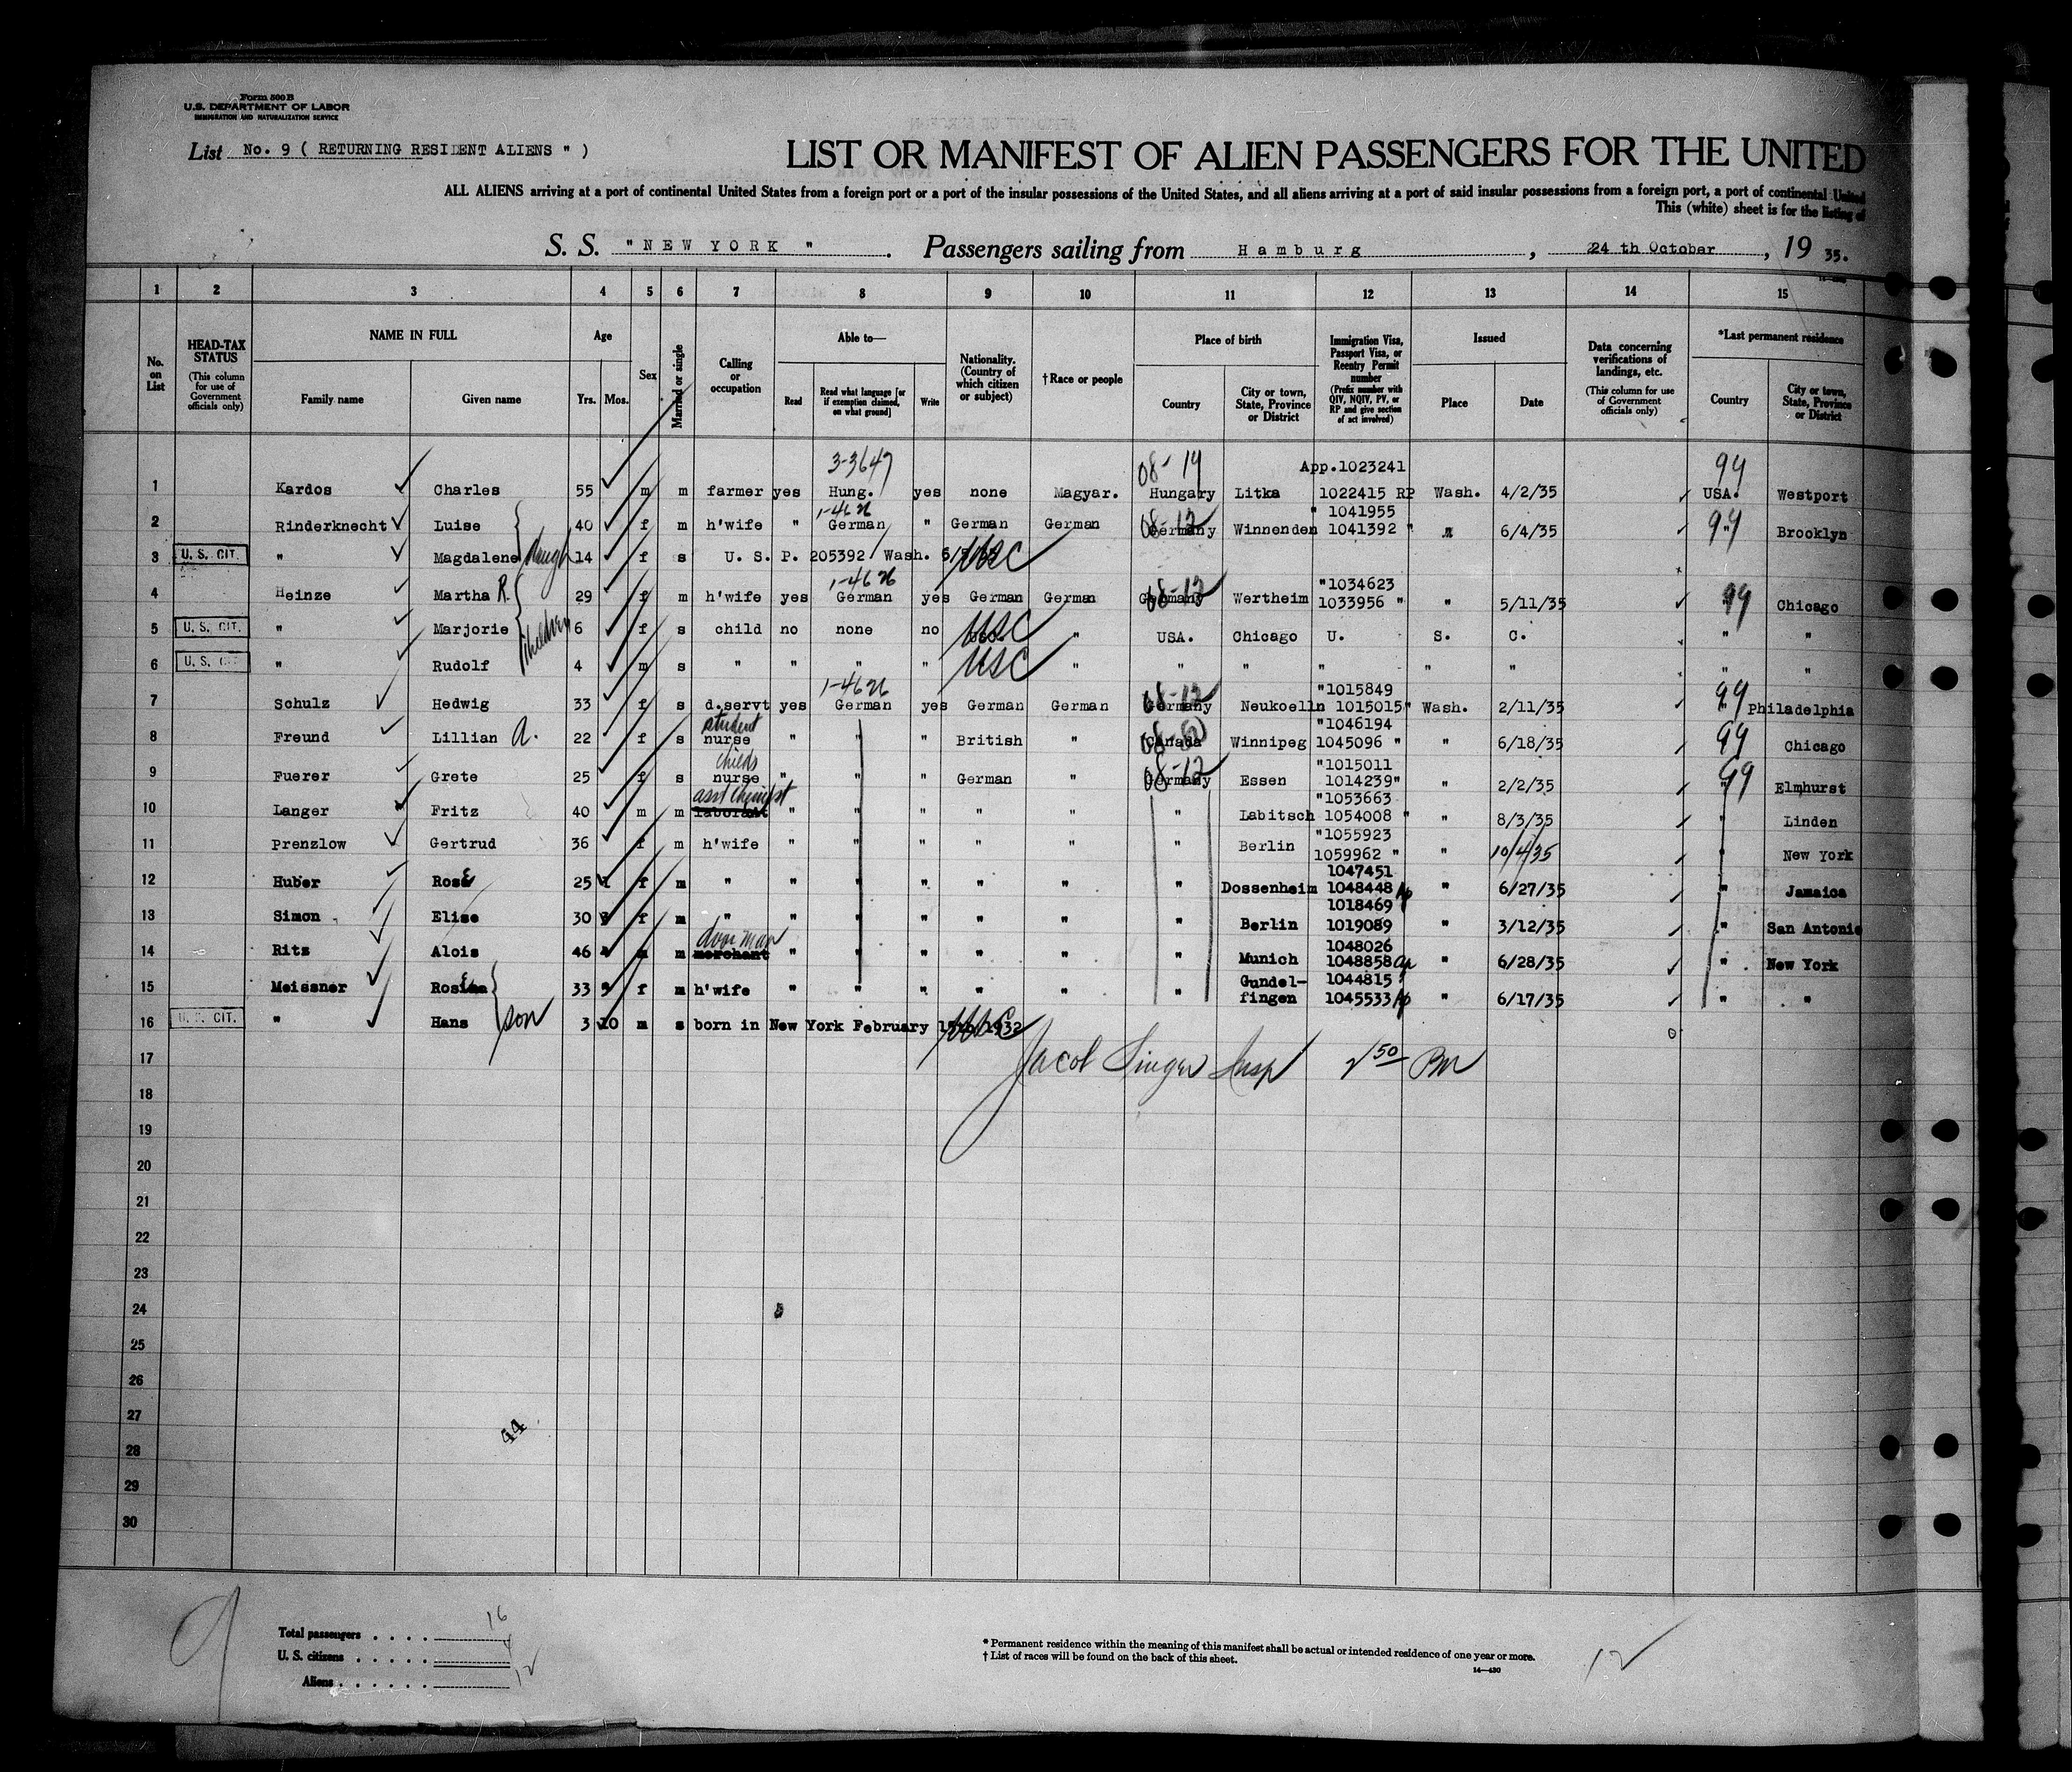 Form 500 B
U.S. DEPARTMENT OF LABOR
IMMIGRATION AND NATURALIZATION SERVICE
List No. 9 ( RETURNING RESIDENT ALIENS " )
LIST OR MANIFEST OF ALIEN PASSENGERS FOR THE UNITED
ALL ALIENS arriving at a port of continental United States from a foreign port or a port of the insular possessions of the United States, and all aliens arriving at a port of said insular possessions from a foreign port, a port of continental United
This (white) sheet is for the listing of
S. S. " NEW YORK " . Passengers sailing from Hamburg , 24 th October , 19 35.
1 2 3 4 5 6 7 8 9 10 11 12 13 14 15
No. on List
HEAD-TAX STATUS (This column for use of Government officials only)
NAME IN FULL Family name Given name
Age Yrs. Mos.
Sex
Married or single
Calling or occupation
Able to— Read Read what language [or if exemption claimed, on what ground] Write
Nationality. (Country of which citizen or subject)
†Race or people
Place of birth Country City or town, State, Province or District
Immigration Visa, Passport Visa, or Reentry Permit number (Prefix number with QIV, NQIV, PV, or RP and give section of act involved)
Issued Place Date
Data concerning verifications of landings, etc. (This column for use of Government officials only)
*Last permanent residence Country City or town, State, Province or District
3-3647 08-14 App.1023241 99
1 Kardos Charles 55 m m farmer yes Hung. yes none Magyar. Hungary Litka 1022415 RP Wash. 4/2/35 USA. Westport
1-4626 08-12 " 1041955 99
2 Rinderknecht Luise 40 f m h'wife " German " German German Germany Winnenden 1041392 " " 6/4/35 " Brooklyn
3 U. S. CIT. " Magdalene daugh 14 f s U. S. P. 205392 Wash. USC
1-4626 08-12 "1034623 99
4 Heinze Martha R. 29 f m h'wife yes German yes German German Germany Wertheim 1033956 " " 5/11/35 " Chicago
5 U. S. CIT. " Marjorie children 6 f s child no none no USC " USA. Chicago U. S. C. " "
6 U. S. CIT. " Rudolf 4 m s " " " " USC " " " " " " " "
1-4626 08-12 "1015849 99
7 Schulz Hedwig 33 f s d.servt yes German yes German German Germany Neukoelln 1015015" Wash. 2/11/35 " Philadelphia
student "1046194 99
8 Freund Lillian A. 22 f s nurse " " " British " Canada Winnipeg 1045096 " " 6/18/35 Chicago
childs 08-12 "1015011 99
9 Fuerer Grete 25 f s nurse " " " German " Germany Essen 1014239" " 2/2/35 " Elmhurst
asst chemist "1053663
10 Langer Fritz 40 m m laborant " " " " " " Labitsch 1054008 " " 8/3/35 " Linden
"1055923
11 Prenzlow Gertrud 36 f m h'wife " " " " " " Berlin 1059962 " " 10/4/35 " New York
1047451
12 Huber Rose 25 1 f m " " " " " " " Dossenheim 1048448 " 6/27/35 " Jamaica
1018469
13 Simon Elise 30 f m " " " " " " " Berlin 1019089 " 3/12/35 " San Antonio
door man 1048026
14 Ritz Alois 46 m m merchant " " " " " " Munich 1048858 " 6/28/35 " New York
Gundel- 1044815
15 Meissner 33 f m h'wife " " " " " " fingen 1045533 " 6/17/35 " "
16 U. S. CIT. " Hans son 3 10 m s born in New York February 1932 USC
17 Jacob Singer Insp 2 50 PM
18
19
20
21
22
23
24
25
26
27
28
29
30
44
9
Total passengers . . . . 16
U. S. citizens . . . . . 4
Aliens . . . . . . 12
* Permanent residence within the meaning of this manifest shall be actual or intended residence of one year or more.
† List of races will be found on the back of this sheet.
14—430
12